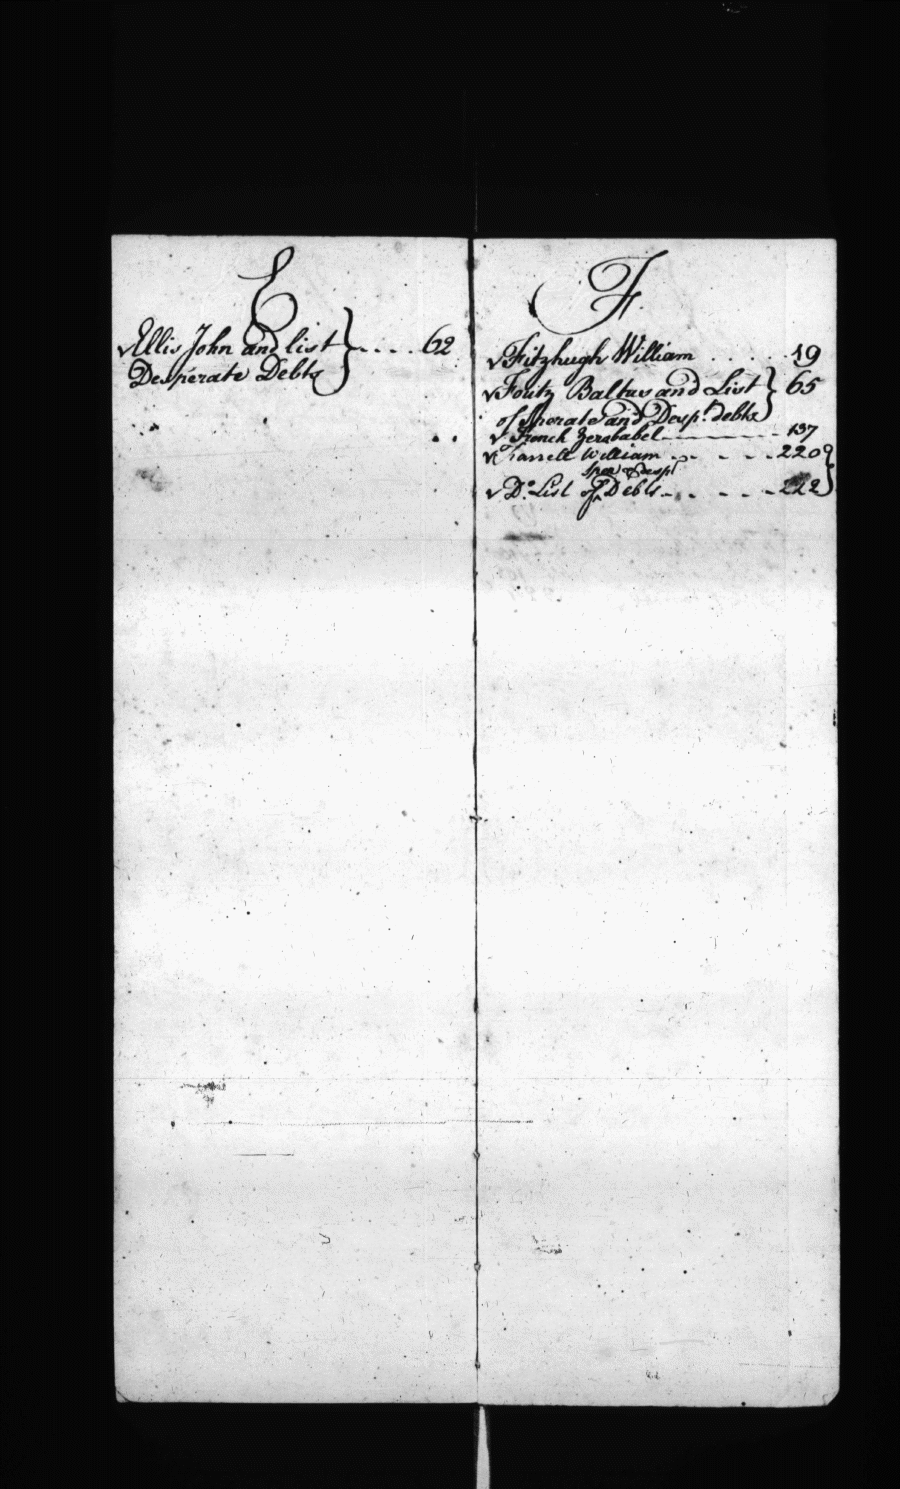 E
Ellis John and list } .... 62
Desperate Debts
F
Fitzhugh William ..... 19
Foutz Baltus and List } 65
of Sperate and Despt. debts
French Zerababel 137
Farrell William 220
Sper & despt
Do. List of Debts 222